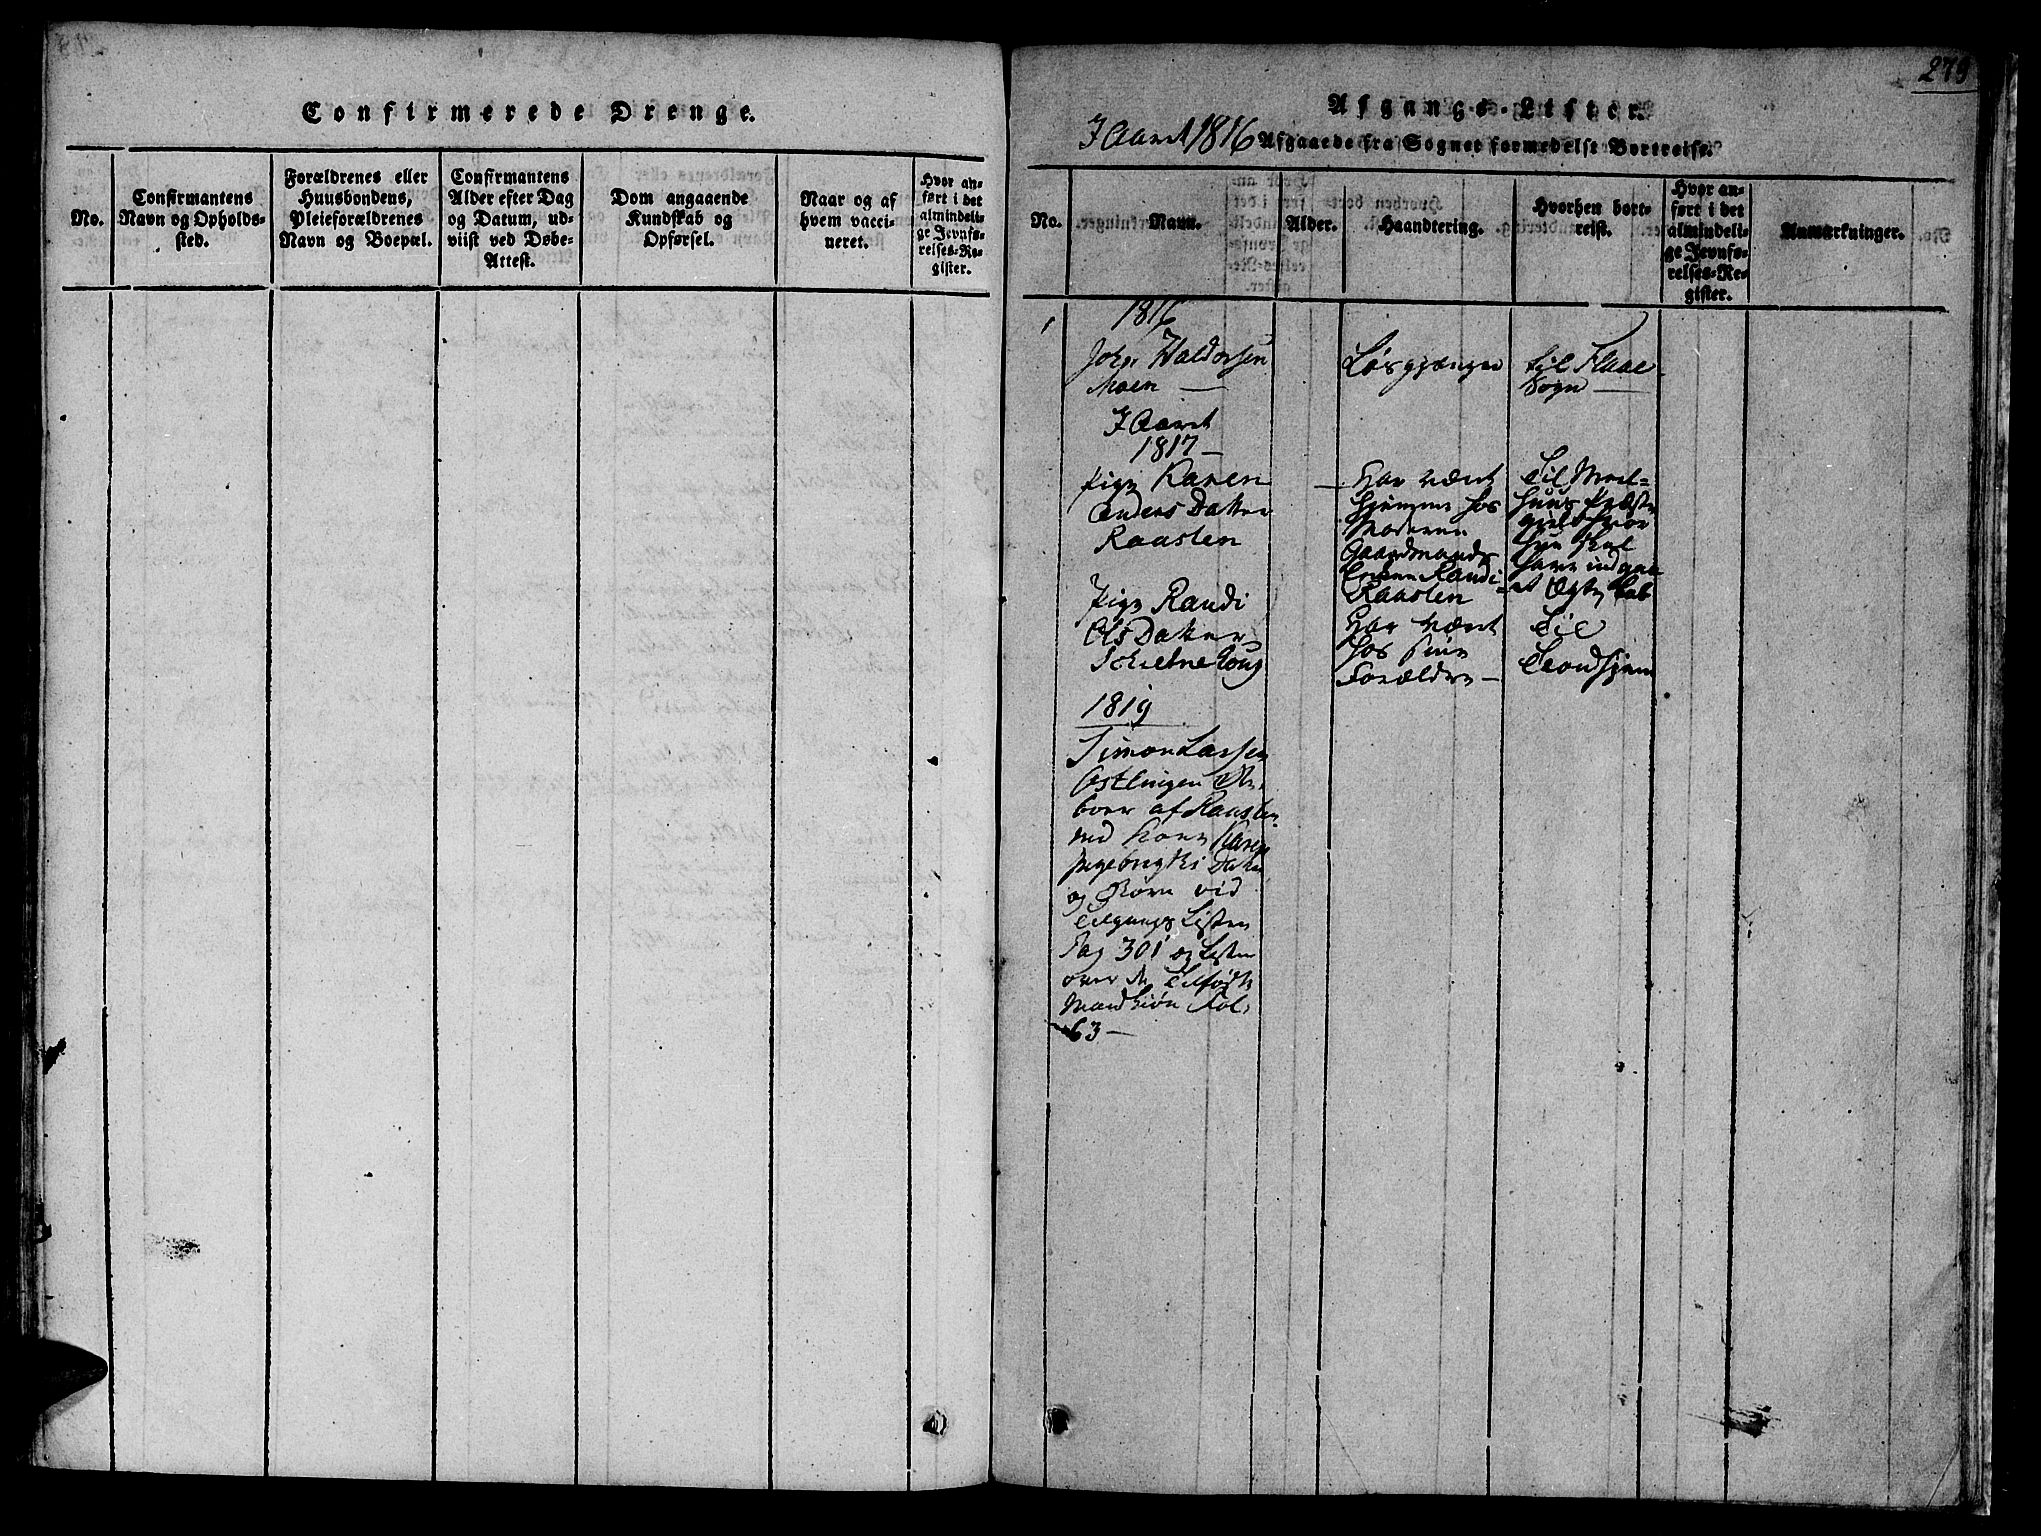 Confirmerede Drenge.
No.
Confirmantens
Navn og Opholds-
sted.
Forældrenes eller
Huusbondens,
Pleieforældrenes
Navn og Boepæl.
Confirmantens
Alder efter Dag
og Datum, ud-
viist ved Døbe-
Attest.
Dom angaaende
Kundskab og
Opførsel.
Naar og af
hvem vacci-
neret.
Hvor an-
ført i det
almindeli-
ge Jevnfø-
relses-Re-
gister.
279
Afgangs-Lister.
I Aaret 1816 Afgaaede fra Sognet formedelst Bortreise.
No.
Navn.
Alder.
Haandtering.
Hvorhen bort-
reist.
Hvor an-
ført i det
almindeli-
ge Jevnfø-
relses-Re-
gister.
Anmærkninger.
1816
Haldorsen
Moen
Løsgjænger
til Flaae
Sogn
I Aaret
1817
Pige Karen
Anders Datter
Raasten
Har været
hjemme hos
Moderen
Gaardmands
Randi
Raasten
Til Meel-
huus Præste
gield hvor
hun skal
have indgaae
et Ægteskab
Pige Randi
Ols Datter
Har været
hos sine
Forældre
Til
Trondhjem
1819
Simon Larsen
Østlingen
af Raasten
med Kone Karen
Ingebrigts Datter
og Børn vid
Tilgangs Listen
Pag 301 og Listen
over de
Mandkiøn Fol.
63